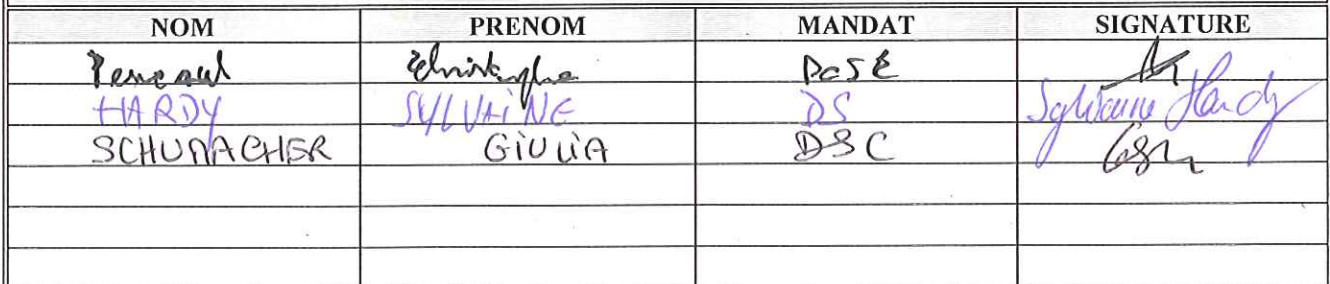 NOM PRENOM MANDAT SIGNATURE
Christophe
HARDY SYLVAINE DS Sylvaine Hardy
SCHUMACHER GIULIA DSC